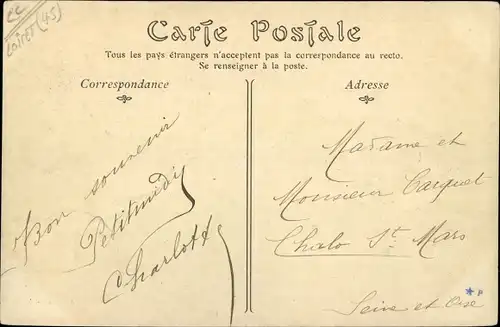 CC
Loiret (45)
Carte Postale
Tous les pays étrangers n'acceptent pas la correspondance au recto.
Se renseigner à la poste.
Correspondance
Bon souvenir
Petitmidi
Charlotte
Adresse
Madame et
Monsieur Carquet
Chalo St Mars
Seine et Oise
* P